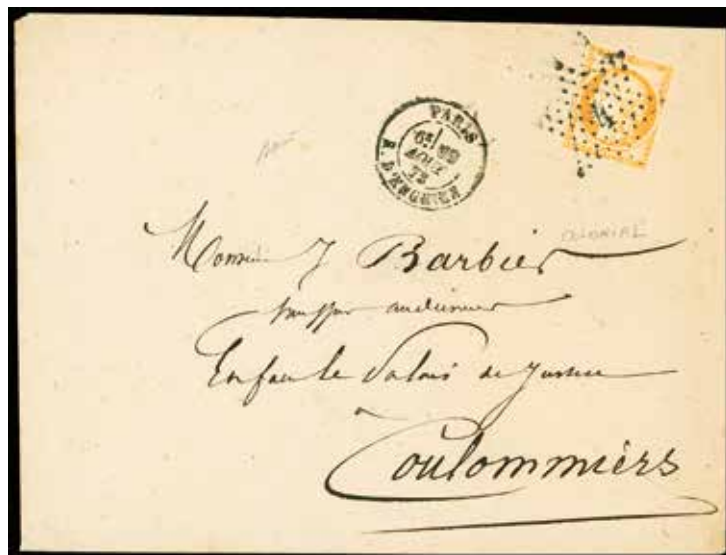 PARIS
6E
AOUT
72
R. D'ENGHIEN
COLONIAL
Monsieur J Barbier
huissier audiencier
En face le Palais de Justice
a
Coulommiers